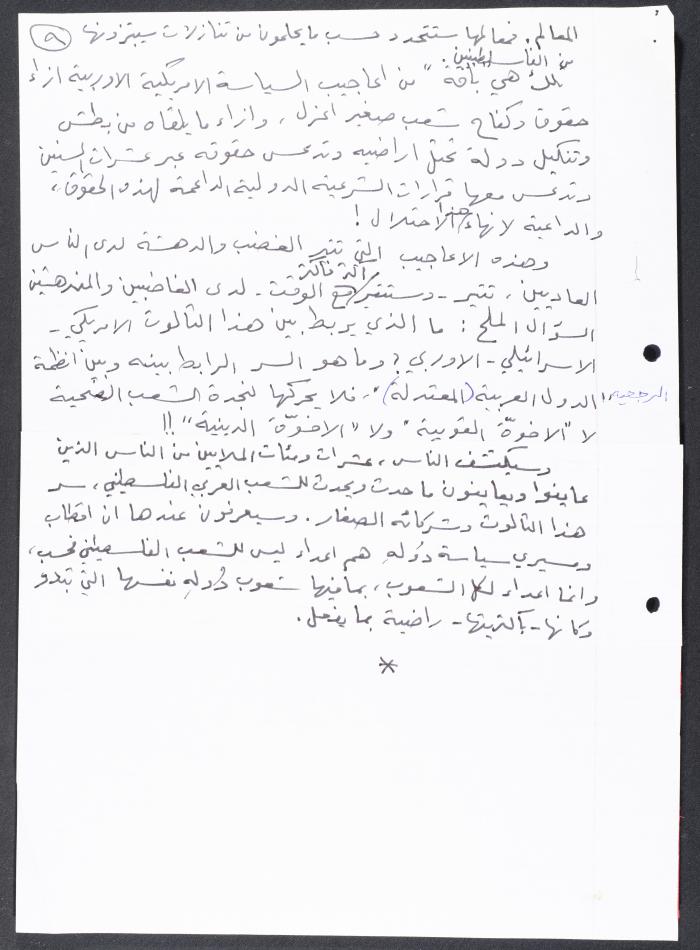 المعالم. فمعالمها ستتحدد حسب ما يحلمون من تنازلات سيبتزونها ٩
من الفلسطينيين.
تلك هي باقة " من اعاجيب السياسة الامريكية الاوربية ازاء
حقوق وكفاح شعب صغير اعزل، وازاء ما يلقاه من بطش
وتنكيل دولة تحتل اراضيه وتدعس حقوقه عبر عشرات السنين
وتدعس معها قرارات الشرعية الدولية الداعمة لهذه الحقوق،
والداعية لانهاء هذا الاحتلال!
وهذه الاعاجيب التي تثير الغضب والدهشة لدى الناس
اكثر فأكثر
العاديين، تثير - وستثير مع الوقت - لدى الغاضبين والمندهشين
السؤال الملح: ما الذي يربط بين هذا الثالوث الامريكي -
الاسرائيلي - الاوربي؟ وما هو السر الرابط بينه وبين انظمة
الرجعية، الدول العربية (المعتدلة)، فلا يحركها لنجدة الشعب الضحية
لا "الاخوّة القومية" ولا "الاخوّة الدينية"!!
وسيكتشف الناس، عشرات ومئات الملايين من الناس الذين
عاينوا ويعاينون ما حدث ويحدث للشعب العربي الفلسطيني، سر
هذا الثالوث وشركائه الصغار. وسيعرفون عندها ان اقطاب
ومسيري سياسة دُوَلِهِ هم اعداء ليس للشعب الفلسطيني فحسب،
وانما اعداء لكل الشعوب، بما فيها شعوب دُولِهِ نفسها التي تبدو
وكانها - بأكثريتها - راضية بما يفعل.
*